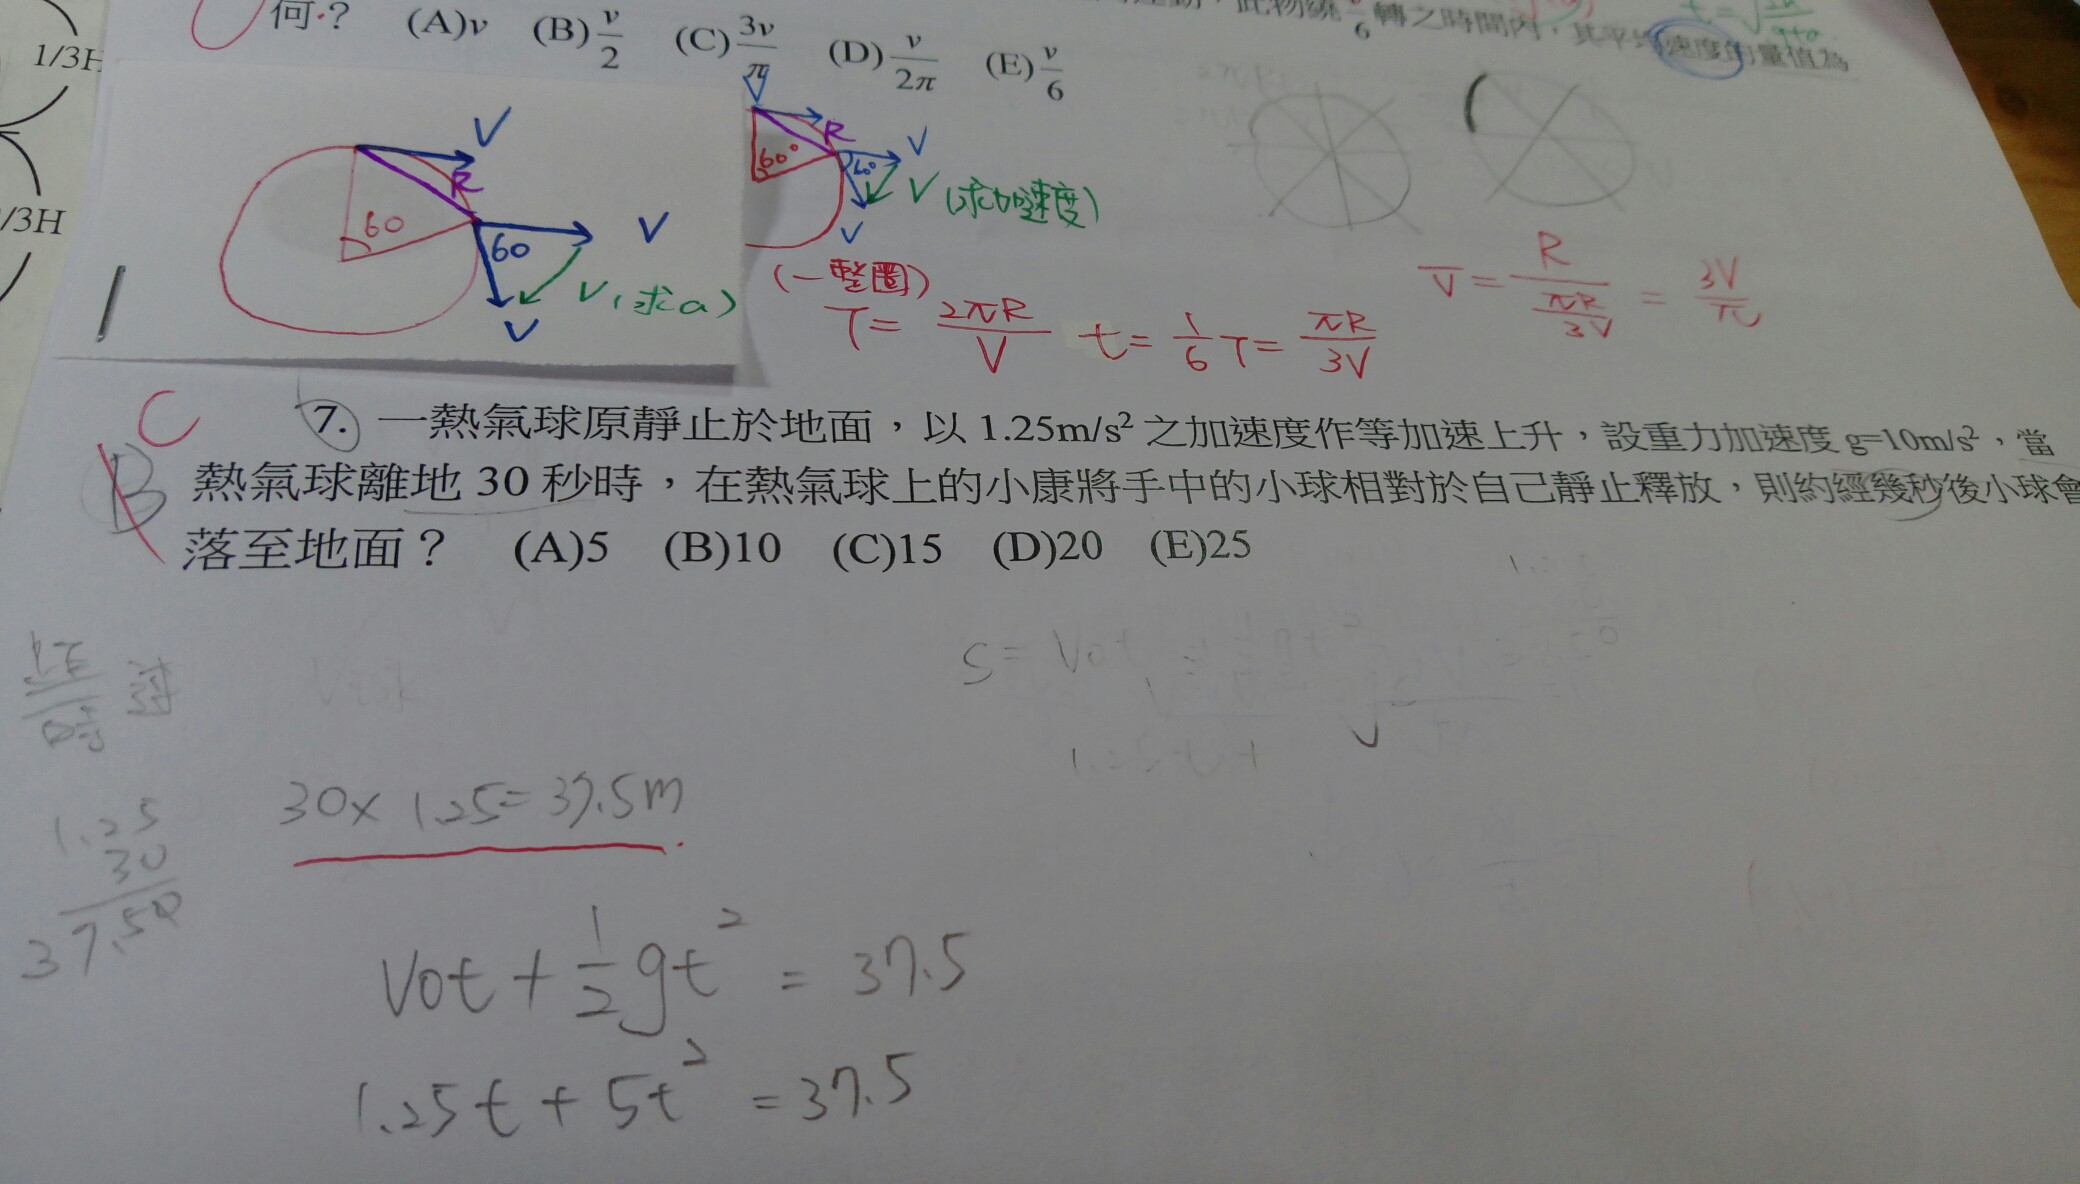 何?　(A)v　(B)v/2　(C)3v/π　(D)v/2π　(E)v/6
6 轉之時間內，其平均速度的量值為
1/3H
/3H
V
R
60
V
60
V(求a)
V
V
R
60°
V
60°
V(求加速度)
V
(一整圈)
T = 2πR/V　t = 1/6 T = πR/3V
V̄ = R/(πR/3V) = 3V/π
C
B
7. 一熱氣球原靜止於地面，以 1.25m/s² 之加速度作等加速上升，設重力加速度 g=10m/s²，當
熱氣球離地 30 秒時，在熱氣球上的小康將手中的小球相對於自己靜止釋放，則約經幾秒後小球會
落至地面？　(A)5　(B)10　(C)15　(D)20　(E)25
S = V0t
30 × 1.25 = 37.5m
1.25
30
37.50
V0t + 1/2 gt² = 37.5
1.25t + 5t² = 37.5